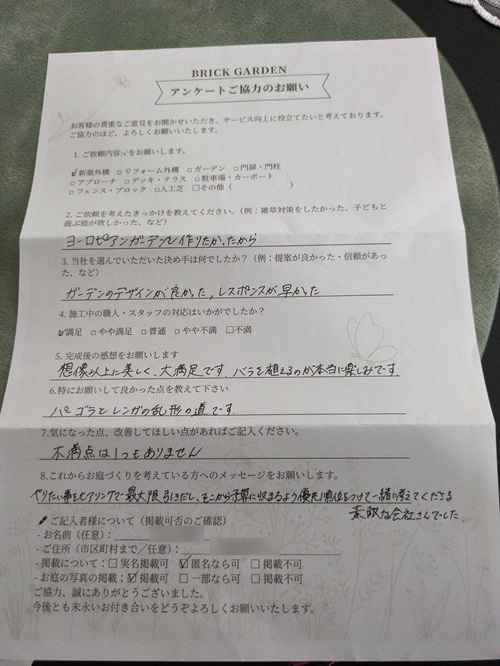 BRICK GARDEN
アンケートご協力のお願い
お客様の貴重なご意見をお聞かせいただき、サービス向上に役立てたいと考えております。
ご協力のほど、よろしくお願いいたします。
1. ご依頼内容:✓をお願いします。
☑新築外構 □リフォーム外構 □ガーデン □門扉・門柱
□アプローチ □デッキ・テラス □駐車場・カーポート
□フェンス・ブロック □人工芝 □その他 ( )
2. ご依頼を考えたきっかけを教えてください。(例:雑草対策をしたかった、子どもと
遊ぶ庭が欲しかった、など)
ヨーロピアンガーデンを作りたかったから
3. 当社を選んでいただいた決め手は何でしたか?(例:提案が良かった・信頼があっ
た、など)
ガーデンのデザインが良かった,レスポンスが早かった
4. 施工中の職人・スタッフの対応はいかがでしたか?
☑満足 □やや満足 □普通 □やや不満 □不満
5. 完成後の感想をお願いします
想像以上に美しく、大満足です バラを植えるのが本当に楽しみです
6.特にお願いして良かった点を教えて下さい
パーゴラとレンガの乱形の道です
7.気になった点、改善してほしい点があればご記入ください。
不満点は1つもありません
8.これからお庭づくりを考えている方へのメッセージをお願いします。
やりたい事をヒアリングで最大限引きだし、そこから予算に収まるよう優先順位をつけて一緒に考えてくださる
素敵な会社さんでした。
ご記入者様について(掲載可否のご確認)
- お名前(任意):
- ご住所(市区町村まで/任意):
- 掲載について:□実名掲載可 ☑匿名なら可 □掲載不可
- お庭の写真の掲載:☑掲載可 □一部なら可 □掲載不可
ご協力、誠にありがとうございました。
今後とも末永いお付き合いをどうぞよろしくお願いいたします。